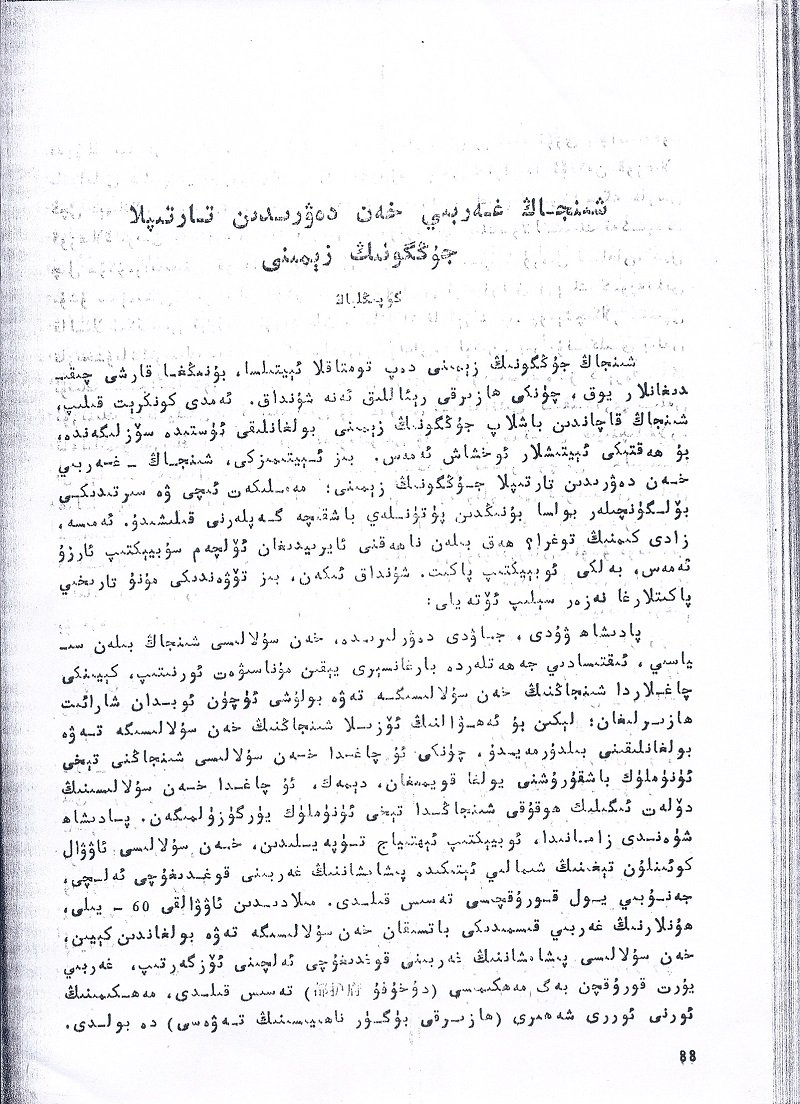 شىنجاڭ غەربىي خەن دەۋرىدىن تارتىپلا
جۇڭگونىڭ زېمىنى
گۇپىڭلىياڭ
شىنجاڭ جۇڭگونىڭ زېمىنى دەپ تومتاقلا ئېيتىلسا، بۇنىڭغا قارشى چىقى‍
دىغانلار يوق، چۈنكى ھازىرقى رېئاللىق ئەنە شۇنداق. ئەمدى كونكرېت قىلىپ،
شىنجاڭ قاچاندىن باشلاپ جۇڭگونىڭ زېمىنى بولغانلىقى ئۈستىدە سۆزلىگەندە،
بۇ ھەقتىكى ئېيتىشلار ئوخشاش ئەمەس. بىز ئېيتىمىزكى، شىنجاڭ - غەربىي
خەن دەۋرىدىن تارتىپلا جۇڭگونىڭ زېمىنى؛ مەملىكەت ئىچى ۋە سىرتىدىكى
بۆلگۈنچىلەر بولسا بۇنىڭدىن پۈتۈنلەي باشقىچە گەپلەرنى قىلىشىدۇ. ئەمىسە،
زادى كىمنىڭ توغرا؟ ھەق بىلەن ناھەقنى ئايرىيدىغان ئۆلچەم سۇبيېكتىپ ئارزۇ
ئەمەس، بەلكى ئوبيېكتىپ پاكىت. شۇنداق ئىكەن، بىز تۆۋەندىكى مۇنۇ تارىخىي
پاكىتلارغا نەزەر سېلىپ ئۆتەيلى:
پادىشاھ ۋۇدى، جاۋدى دەۋرلىرىدە، خەن سۇلالىسى شىنجاڭ بىلەن سى‍
ياسىي، ئىقتىسادىي جەھەتلەردە بارغانسېرى يېقىن مۇناسىۋەت ئورنىتىپ، كېيىنكى
چاغلاردا شىنجاڭنىڭ خەن سۇلالىسىگە تەۋە بولۇشى ئۈچۈن ئوبدان شارائىت
ھازىرلىغان؛ لېكىن بۇ ئەھۋالنىڭ ئۆزىلا شىنجاڭنىڭ خەن سۇلالىسىگە تەۋە
بولغانلىقىنى بىلدۈرمەيدۇ، چۈنكى ئۇ چاغدا خەن سۇلالىسى شىنجاڭنى تېخى
ئۈنۈملۈك باشقۇرۇشنى يولغا قويمىغان، دېمەك، ئۇ چاغدا خەن سۇلالىسىنىڭ
دۆلەت ئىگىلىك ھوقۇقى شىنجاڭدا تېخى ئۈنۈملۈك يۈرگۈزۈلمىگەن. پادىشاھ
شۈەندى زامانىدا، ئوبيېكتىپ ئېھتىياج تۈپەيلىدىن، خەن سۇلالىسى ئاۋۋال
كوئىنلۇن تېغىنىڭ شىمالىي ئېتىكىدە پىشامشاننىڭ غەربىنى قوغدىغۇچى ئەلچى،
جەنۇبىي يول قورۇقچىسى تەسىس قىلدى. مىلادىدىن ئاۋۋالقى 60 - يىلى،
ھۇنلارنىڭ غەربىي قىسمىدىكى باتىسقان خەن سۇلالىسىگە تەۋە بولغاندىن كېيىن،
خەن سۇلالىسى پىشامشاننىڭ غەربىنى قوغدىغۇچى ئەلچىنى ئۆزگەرتىپ، غەربىي
يۇرت قورۇقچى بەگ مەھكىمىسى (دۇخۇفۇ) تەسىس قىلدى، مەھكىمىنىڭ
ئورنى ئوررى شەھىرى (ھازىرقى بۈگۈر ناھىيىسىنىڭ تەۋەسى) دە بولدى.
88